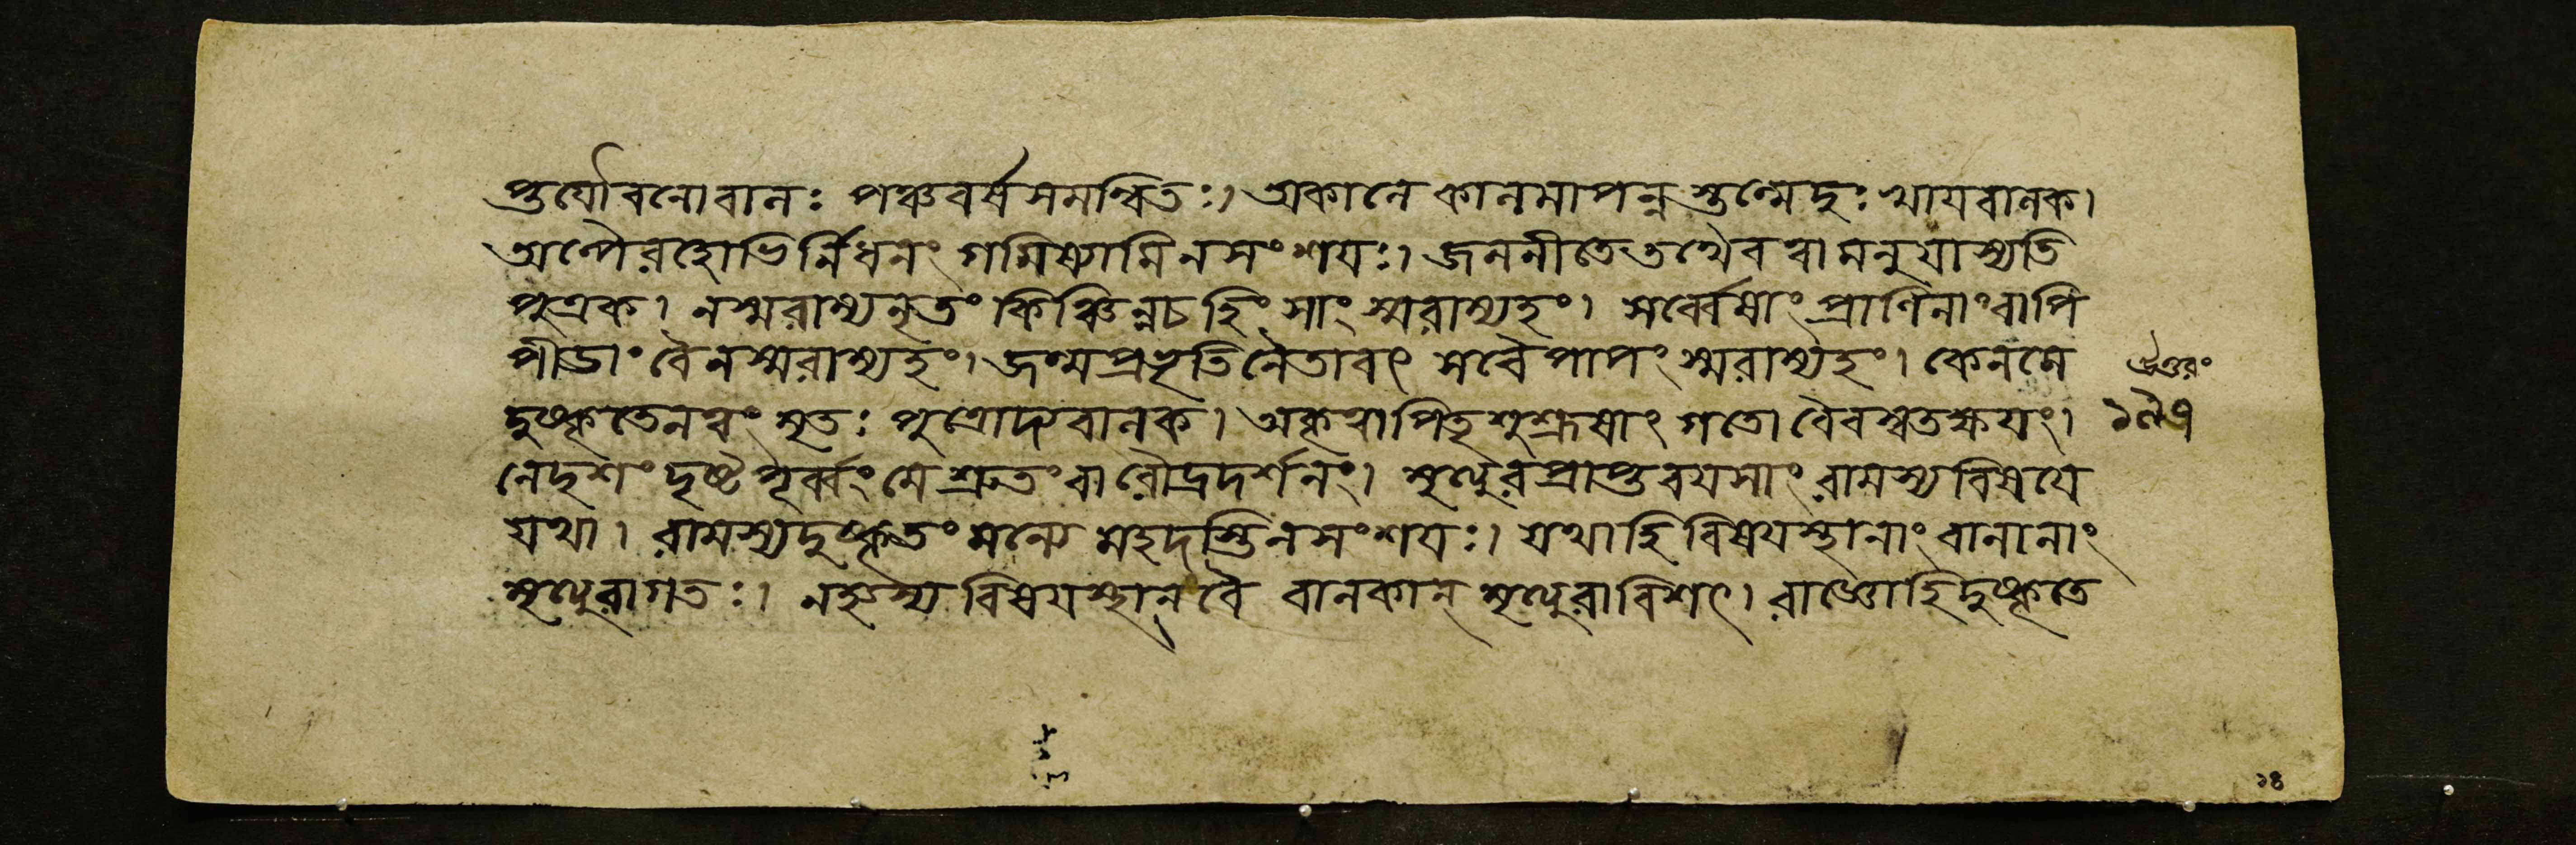 প্তর্যৌবনোবালঃ পঞ্চবর্ষসমন্বিতঃ। অকালে কালমাপন্নস্তন্মেদুঃখাযবালক।
অল্পৈরহোভির্নিধনং গমিষ্যামিনসংশযঃ। জননীতেতথৈবত্বামনুযাস্যতি
পুত্রক। নস্মরাম্যনৃতং কিঞ্চিন্নচহিংসাং স্মরাম্যহং। সর্ব্বেষাং প্রাণিনাংবাপি
পীডাং বৈনস্মরাম্যহং। জন্মপ্রভৃতিনৈতাবৎ সর্বৈ পাপং স্মরাম্যহং। কেনমে
দুষ্কৃতেনত্বং মৃতঃ পুত্রোদ্যবালক। অকৃত্বাপিতৃশুশ্রূষাং গতো বৈবস্বতক্ষযং।
নেদৃশং দৃষ্টপূর্ব্বংমে শ্রুতংবা রৌদ্রদর্শনং। মৃত্যুরপ্রাপ্তবযসাং রামস্যবিষযে
যথা। রামস্যদুষ্কৃতংমন্যে মহদস্তিনসংশযঃ। যথাহি বিষযস্থানাং বালানাং
মৃত্যুরাগতঃ। নহ্যন্যবিষযস্থান্ বৈ বালকান্ মৃত্যুরাবিশৎ। রাজ্ঞোহিদুষ্কৃতে
১৪